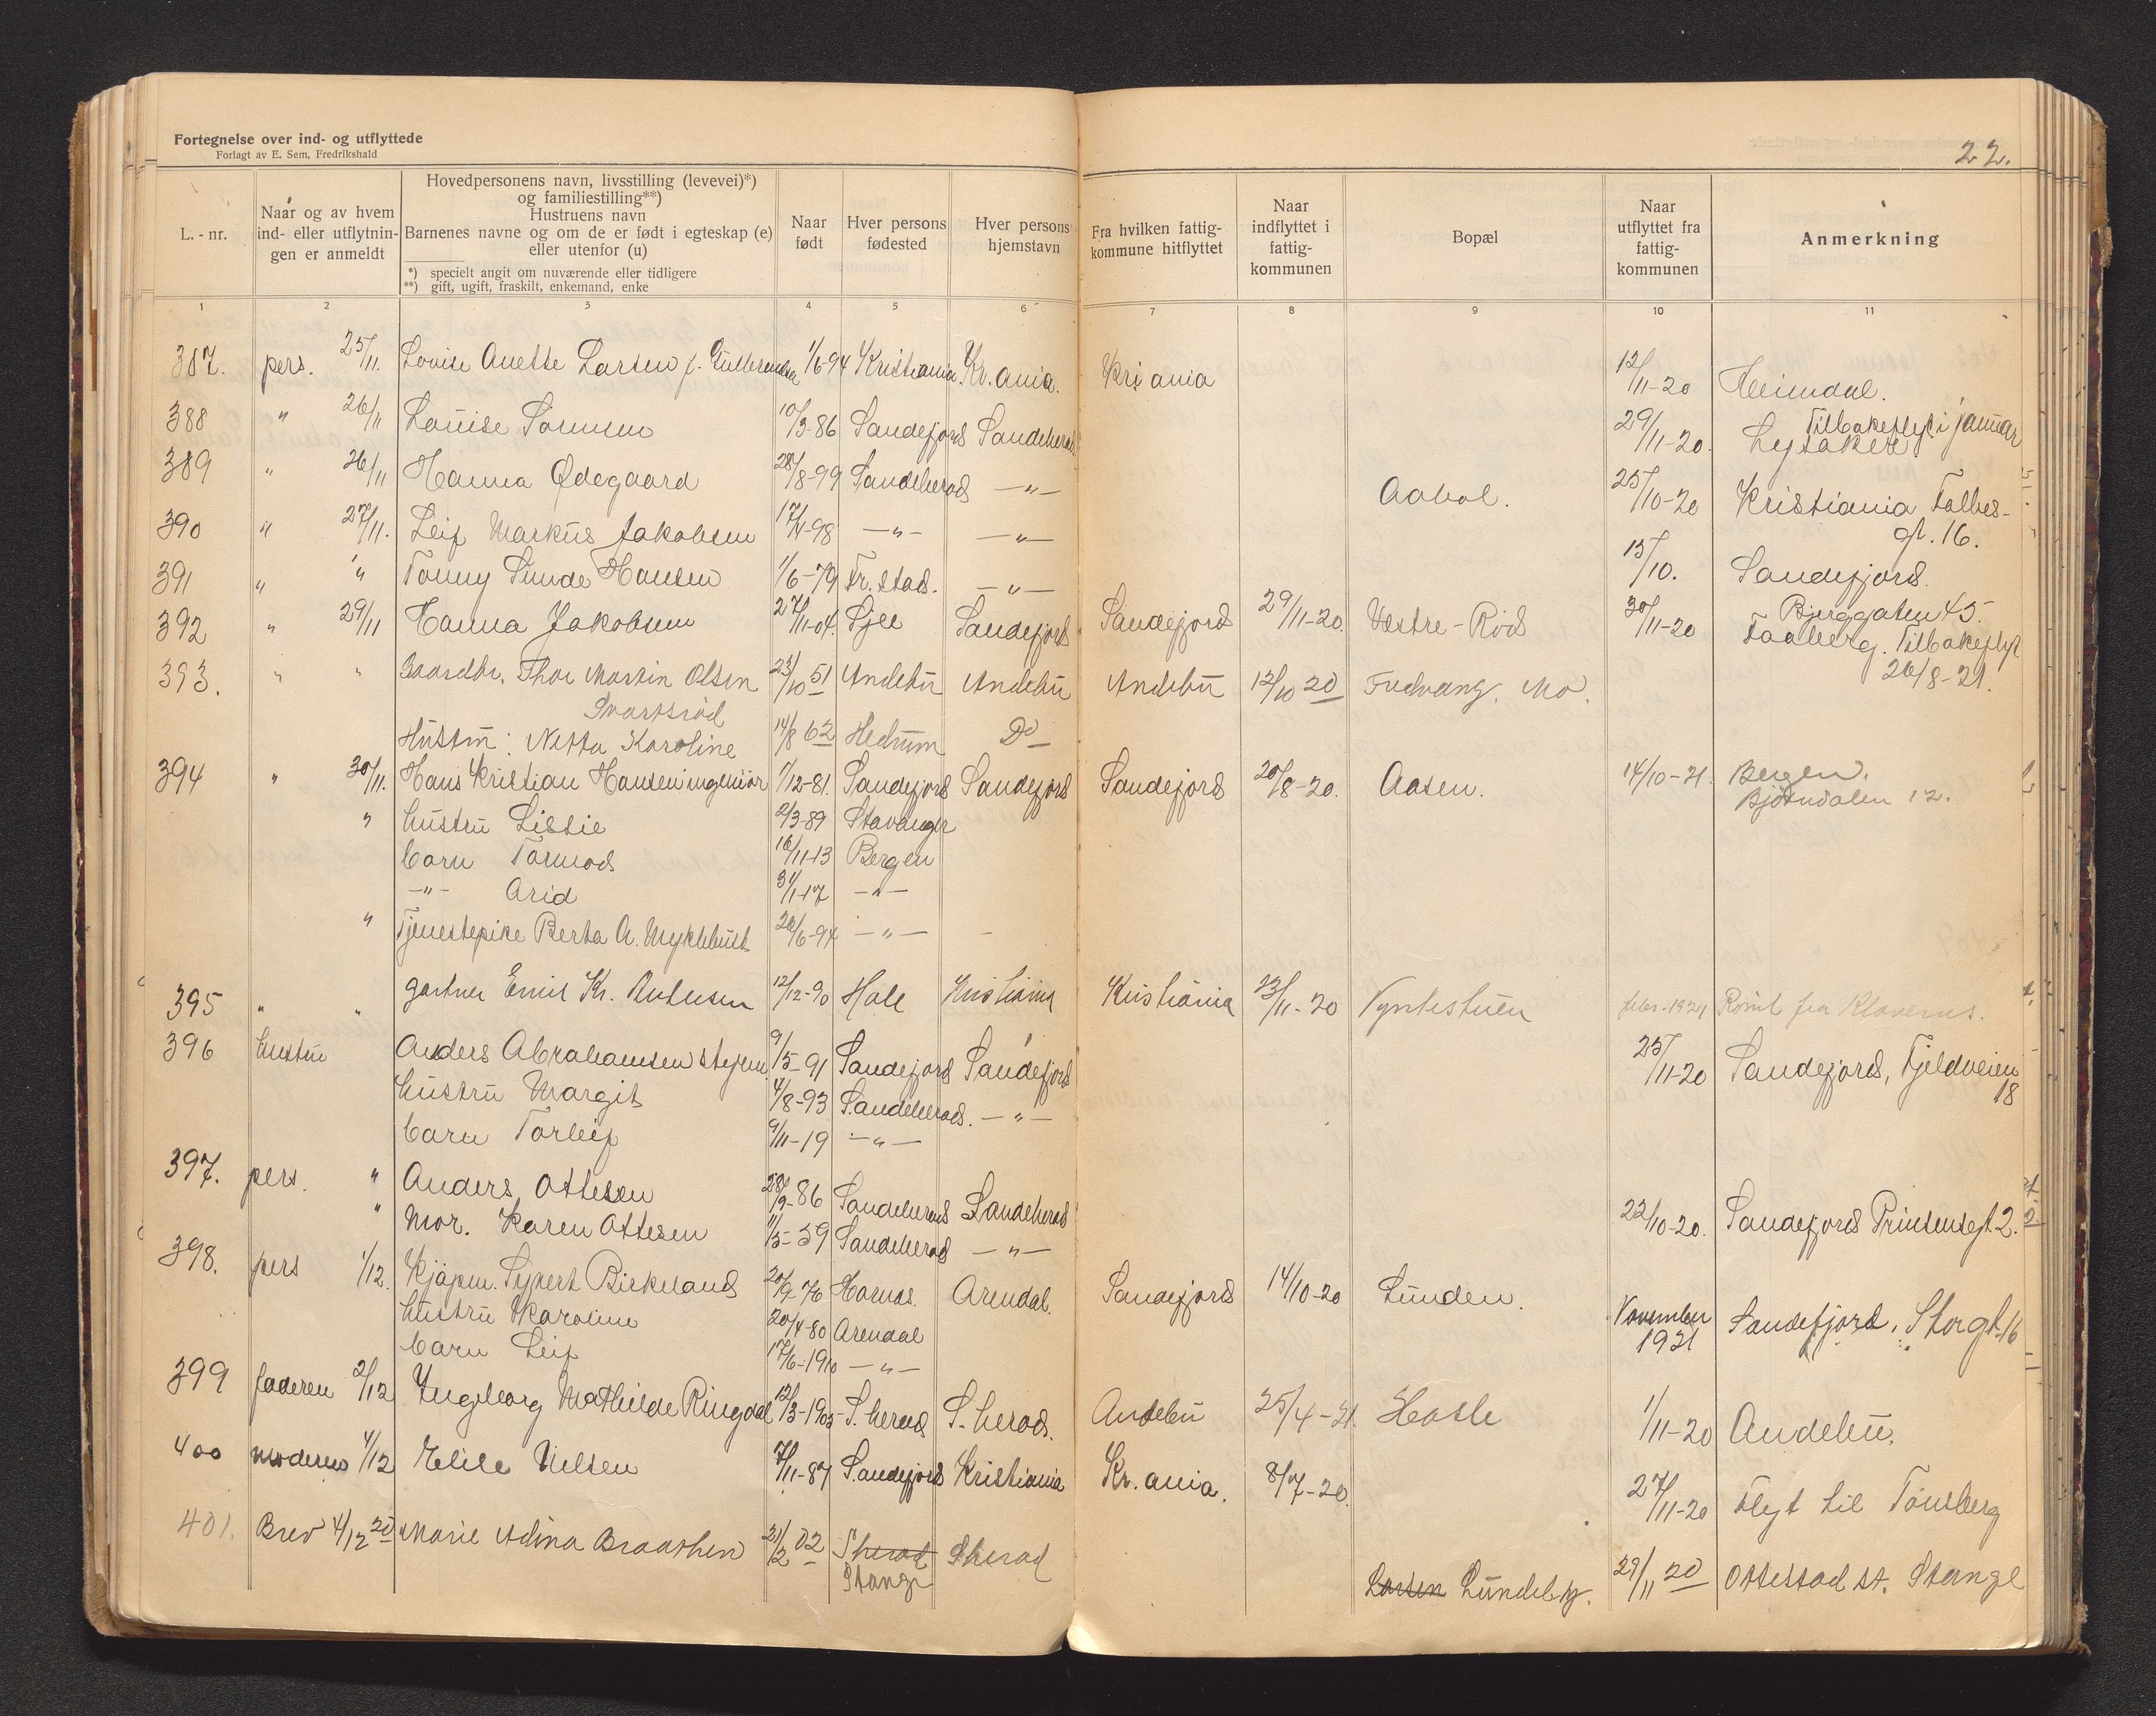 Fortegnelse over ind- og utflyttede
Forlagt av E. Sem, Fredrikshald
22.
L. - nr.
Naar og av hvem ind- eller utflytnin- gen er anmeldt
Hovedpersonens navn, livsstilling (levevei)*)
og familiestilling**)
Hustruens navn
Barnenes navne og om de er født i egteskap (e)
eller utenfor (u)
*) specielt angit om nuværende eller tidligere
**) gift, ugift, fraskilt, enkemand, enke
Naar født
Hver persons fødested
Hver persons hjemstavn
Fra hvilken fattig- kommune hitflyttet
Naar indflyttet i fattig- kommunen
Bopæl
Naar utflyttet fra fattig- kommunen
Anmerkning
1 2 3 4 5 6 7 8 9 10 11
387. pers. 25/11. Louise Anette Larsen f. 1/6-94 Kristiania Kr. ania. Kri ania 12/11-20 Heimdal.
388 " 26/11 Louise Sørensen 10/3-86 Sandefjord Sandeherad 29/11-20. Lysaker Tilbakeflyt i januar
389 " 26/11 Hanna Ødegaard 28/8-99 Sandeherad —"— Aabol. 25/10-20 Kristiania Falbes-
gt. 16.
390 " 27/11. Leif Markus Jakobsen —"— —"—
391 " " Tonny Sunde Hansen 1/6-79 Fr. stad. —"— 15/10. Sandefjord.
Bjerggaten 45.
392 " 29/11 Hanna Jakobsen 27/11-04. Sjee Sandefjord Sandefjord 29/11-20. Vestre-Röd 30/11-20 Faaberg. Tilbakeflyt
26/8-21.
393. " " Gaardbr. Thor Martin Olsen 23/10 51 Andebu Andebu Andebu 12/10 20 Fredvang. Mo.
Svartsrød
Hustru: Netta Karoline 14/8 62 Hedrum Do
394 " 30/11. Hans Kristian Hansen ingeniør 1/12-81. Sandefjord Sandefjord Sandefjord 20/8-20. Aasen. 14/10-21. Bergen.
Bjørndalen 12.
" hustru Lissie 2/3-89 Stavanger
barn Tormod 16/11-13 Bergen
—"— Arid 31/1-17 —"—
" Tjenestepike Berta A. Myklebust 26/6-94 —"— -
395 " " gartner Emil Kr. 12/12-90 Hole Kristiania Kristiania 23/11-20 febr. 1921 Rømt fra Klaverns.
396 hustru Anders Abrahamsen styrm. 9/5-91 Sandefjord Sandefjord 25/11-20 Sandefjord, Fjeldveien
18
hustru Margit 4/8-93 Sandeherad. —"—
barn Torleif 9/11-19 —"—
397. pers. " Anders Ottesen 28/9-86 Sandeherad Sandeherad
" Mor. Karen Ottesen 11/5-59 Sandeherad —"— 22/10-20. Sandefjord Prinsensgt 2.
398. pers 1/12. Kjøpm. Sigvert Birkeland 20/9-76 Hornes. Arendal. Sandefjord 14/10-20 Lunden. November
1921 Sandefjord, Storgt. 16
hustru Karoline 20/4-80 Arendal
barn Leif 17/6-1910 —"—
399 faderen 2/12 Ingeborg Mathilde Ringdal 12/3-1905 S. herad S. herad. Andebu 25/4-21. Hasle 1/11-20 Andebu.
400 moderen 4/12 Elise Nilsen 7/11-87 Sandefjord Kristiania Kr. ania. 8/7-20. 27/11-20 Flyt til Tønsberg
401. Brev 4/12 20 Marie Adina Braathen 31/2 02 Sherad Sherad Larsen Lundeby. 29/11 20 Ottestad st. Stange
Stange